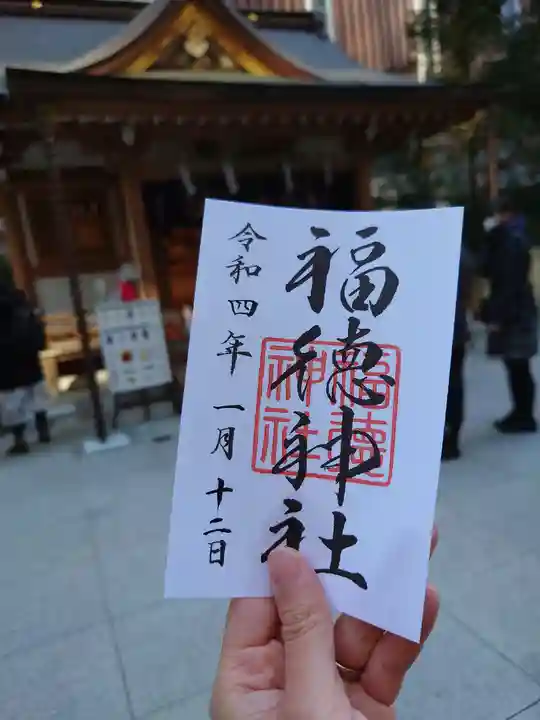 福徳神社
福徳
神社
令和四年 一月 十二日